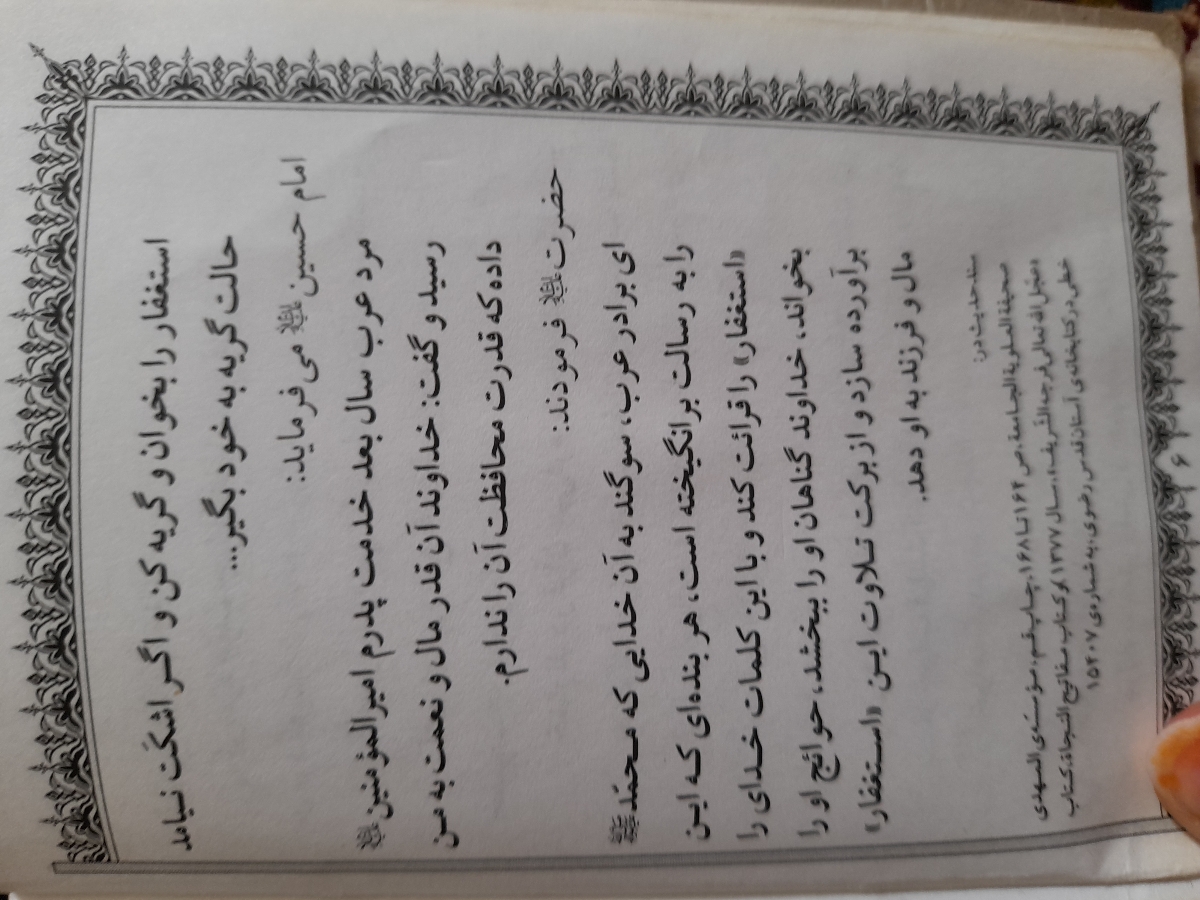 استغفار را بخوان و گریه کن و اگر اشکت نیامد
حالت گریه به خود بگیر...
امام حسین علیه السلام می فرماید:
مرد عرب سال بعد خدمت پدرم امیرالمؤمنین علیه السلام
رسید و گفت: خداوند آن قدر مال و نعمت به من
داده که قدرت محافظت آن را ندارم.
حضرت علیه السلام فرمودند:
ای برادر عرب، سوگند به آن خدایی که محمّد ﷺ
را به رسالت برانگیخته است، هر بنده‌ای که این
«استغفار» را قرائت کند و با این کلمات خدای را
بخواند، خداوند گناهان او را ببخشد، حوائج او را
برآورده سازد و از برکت تلاوت این «استغفار»
مال و فرزند به او دهد.
سند حدیث در:
صحیفة العلویة الجامعة، ص ۱۶۴ تا ۱۶۸، چاپ قم، مؤسسه‌ی المهدی
«عجل الله تعالی فرجه الشریف»، سال ۱۳۷۷ و کتاب مفاتیح النجاة، کتاب
خطی در کتابخانه‌ی آستان قدس رضوی، به شماره‌ی ۱۵۴۰۷
۶